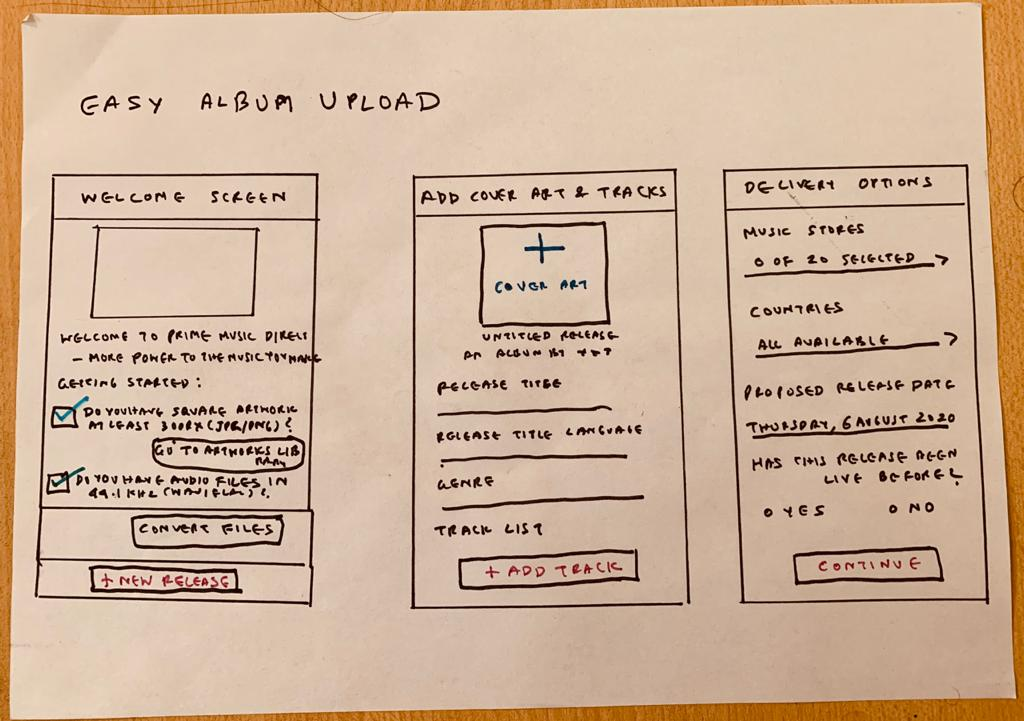 EASY ALBUM UPLOAD
WELCOME SCREEN
WELCOME TO PRIME MUSIC DIRECT
- MORE POWER TO THE MUSIC YOU MAKE
GETTING STARTED:
DO YOU HAVE SQUARE ARTWORK
AT LEAST 300PX (JPG/PNG)?
GO TO ARTWORKS LIB
RARY
DO YOU HAVE AUDIO FILES IN
44.1 KHZ (WAV/FLAC)?
CONVERT FILES
+ NEW RELEASE
ADD COVER ART & TRACKS
+
COVER ART
UNTITLED RELEASE
AN ALBUM BY
RELEASE TITLE
RELEASE TITLE LANGUAGE
GENRE
TRACK LIST
+ ADD TRACK
DELIVERY OPTIONS
MUSIC STORES
0 OF 20 SELECTED >
COUNTRIES
ALL AVAILABLE >
PROPOSED RELEASE DATE
THURSDAY, 6 AUGUST 2020
HAS THIS RELEASE BEEN
LIVE BEFORE?
YES NO
CONTINUE